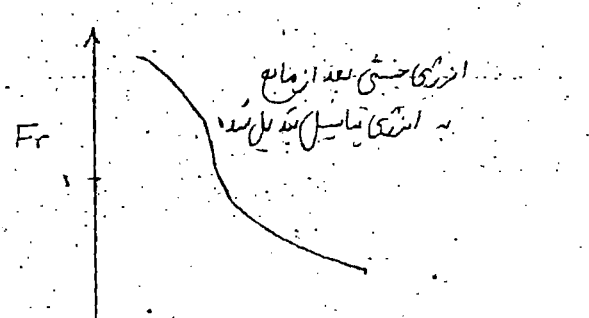 انرژی جنبشی بعد از مانع
به انرژی پتانسیل تبدیل شده
Fr
۱